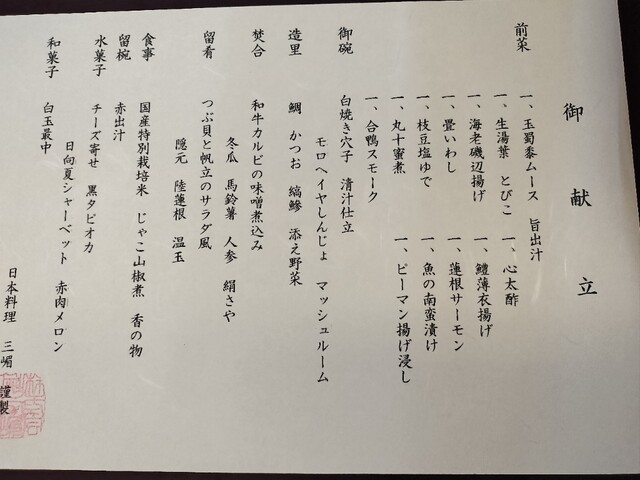 御献立
前菜
一、玉蜀黍ムース 旨出汁
一、生湯葉 とびこ 一、心太酢
一、海老磯辺揚げ 一、鱧薄衣揚げ
一、畳いわし 一、蓮根サーモン
一、枝豆塩ゆで 一、魚の南蛮漬け
一、丸十蜜煮 一、ピーマン揚げ浸し
一、合鴨スモーク
御碗 白焼き穴子 清汁仕立
モロヘイヤしんじょ マッシュルーム
造里 鯛 かつお 縞鯵 添え野菜
焚合 和牛カルビの味噌煮込み
冬瓜 馬鈴薯 人参 絹さや
留肴 つぶ貝と帆立のサラダ風
隠元 陸蓮根 温玉
食事 国産特別栽培米 じゃこ山椒煮 香の物
留椀 赤出汁
水菓子 チーズ寄せ 黒タピオカ
日向夏シャーベット 赤肉メロン
和菓子 白玉最中
日本料理 三嵋 謹製